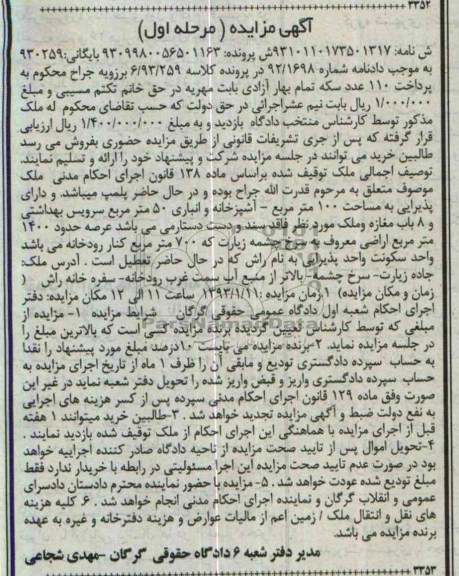 ۳۳۵۲
آگهی مزایده ( مرحله اول)
ش نامه: ۹۳۱۰۱۱۰۱۷۳۵۰۱۳۱۷ش پرونده: ۹۳۰۹۹۸۰۰۵۶۵۰۱۱۶۳ بایگانی:۹۳۰۲۵۹
به موجب دادنامه شماره ۹۲/۱۶۹۸ در پرونده کلاسه ۶/۹۳/۲۵۹ برزویه جراح محکوم به
پرداخت ۱۱۰ عدد سکه تمام بهار آزادی بابت مهریه در حق خانم تکتم مسیبی و مبلغ
۱/۰۰۰/۰۰۰ ریال بابت نیم عشراجرائی در حق دولت که حسب تقاضای محکوم له ملک
مذکور توسط کارشناس منتخب دادگاه بازدید و به مبلغ ۱/۴۰۰/۰۰۰/۰۰۰ ریال ارزیابی
قرار گرفته که پس از جری تشریفات قانونی از طریق مزایده حضوری بفروش می رسد
طالبین خرید می توانند در جلسه مزایده شرکت و پیشنهاد خود را ارائه و تسلیم نمایند.
توصیف اجمالی ملک توقیف شده براساس ماده ۱۳۸ قانون اجرای احکام مدنی ملک
موصوف متعلق به مرحوم قدرت الله جراح بوده و در حال حاضر پلمپ میباشد. و دارای
پذیرایی به مساحت ۱۰۰ متر مربع – آشپزخانه و انباری ۵۰ متر مربع سرویس بهداشتی
و ۸ باب مغازه وملک مورد نظر فاقد سند و دست دستارمی می باشد عرصه حدود ۱۴۰۰
متر مربع اراضی معروف به سرخ چشمه زیارت که ۷۰۰ متر مربع کنار رودخانه می باشد
واحد سکونت واحد پذیرایی به نام راش که در حال حاضر تعطیل است . آدرس ملک:
جاده زیارت– سرخ چشمه– بالاتر از منبع آب سمت غرب رودخانه– سفره خانه راش (
زمان و مکان مزایده) ۱.زمان مزایده :۱۳۹۳/۱/۱۱ ساعت ۱۱ الی ۱۲ مکان مزایده: دفتر
اجرای احکام شعبه اول دادگاه عمومی حقوقی گرگان شرایط مزایده ۱- مزایده از
مبلغی که توسط کارشناس تعیین گردیده برنده مزایده کسی است که بالاترین مبلغ را
در جلسه مزایده نماید. ۲-برنده مزایده می بایست ۱۰درصد مبلغ مورد پیشنهاد را نقدا
به حساب سپرده دادگستری تودیع و مابقی آن را ظرف ۱ ماه از تاریخ اجرای مزایده به
حساب سپرده دادگستری واریز و قبض واریز شده را تحویل دفتر شعبه نماید در غیر این
صورت وفق ماده ۱۲۹ قانون اجرای احکام مدنی سپرده پس از کسر هزینه های اجرایی
به نفع دولت ضبط و آگهی مزایده تجدید خواهد شد . ۳-طالبین خرید میتوانند ۱ هفته
قبل از اجرای مزایده با هماهنگی این اجرای احکام از ملک توقیف شده بازدید نمایند .
۴-تحویل اموال پس از تایید صحت مزایده از ناحیه دادگاه صادر کننده اجراییه خواهد
بود در صورت عدم تایید صحت مزایده این اجرا مسئولیتی در رابطه با خریدار ندارد فقط
مبلغ تودیع شده عودت خواهد شد . ۵- مزایده با حضور نماینده محترم دادستان دادسرای
عمومی و انقلاب گرگان و نماینده اجرای احکام مدنی انجام خواهد شد . ۶. کلیه هزینه
های نقل و انتقال ملک / زمین اعم از مالیات عوارض و هزینه دفترخانه و غیره به عهده
برنده مزایده می باشد.
مدیر دفتر شعبه ۶ دادگاه حقوقی گرگان –مهدی شجاعی
۳۳۵۳